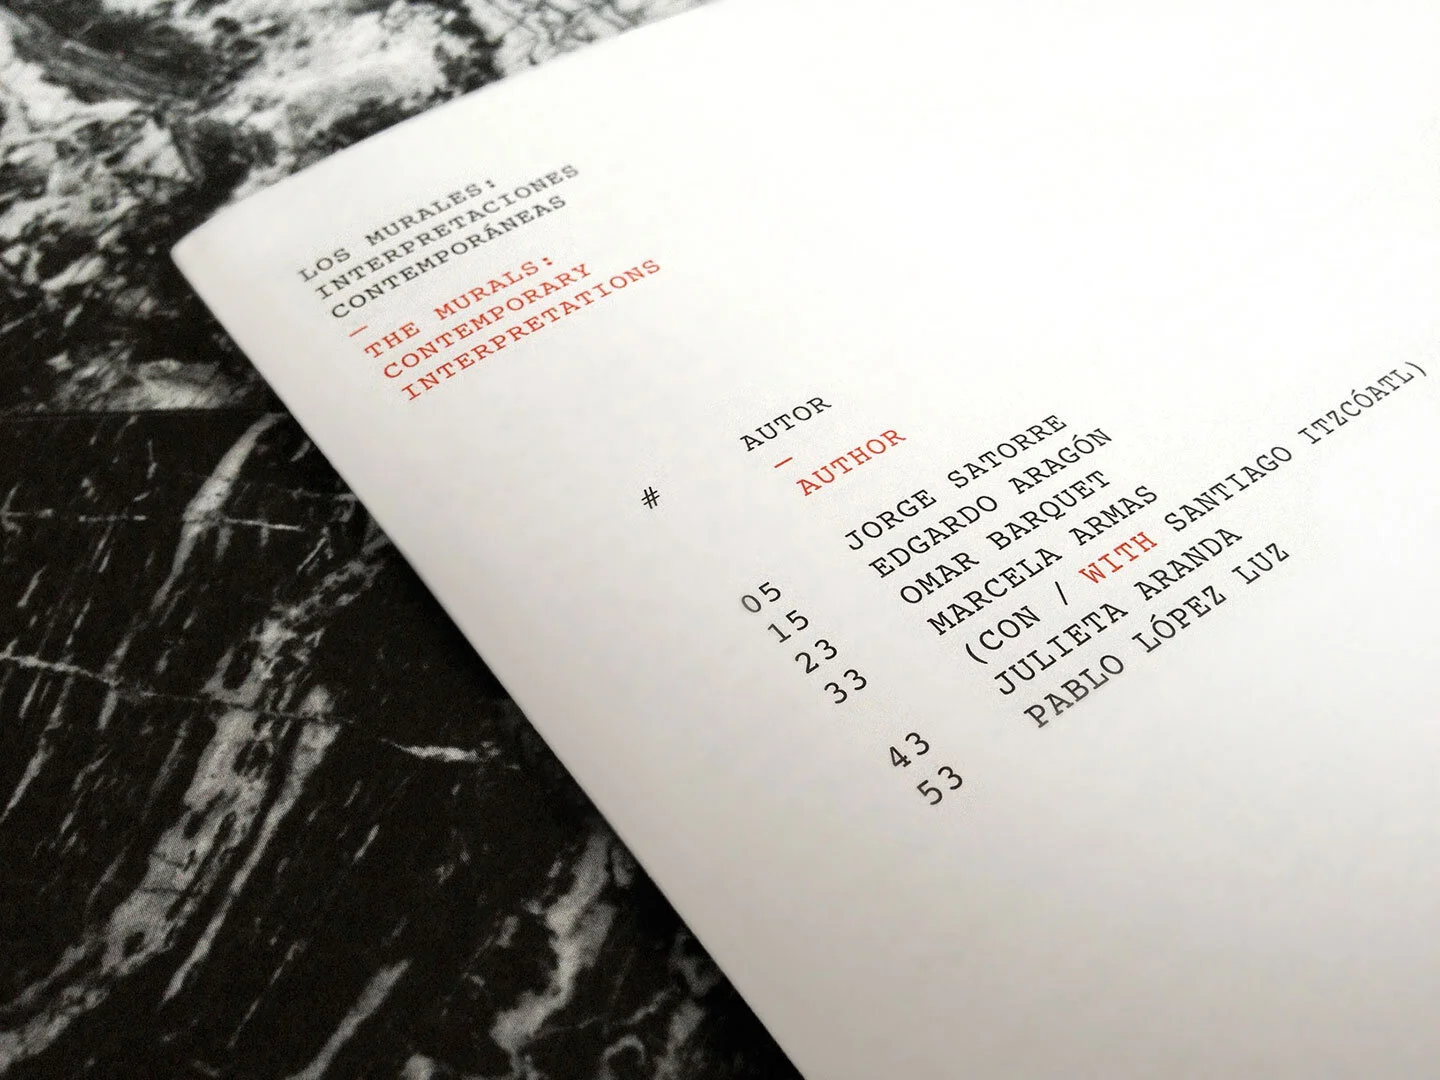 LOS MURALES:
INTERPRETACIONES
CONTEMPORÁNEAS
—
THE MURALS:
CONTEMPORARY
INTERPRETATIONS
#
AUTOR
—
AUTHOR
05 JORGE SATORRE
15 EDGARDO ARAGÓN
23 OMAR BARQUET
33 MARCELA ARMAS
(CON / WITH SANTIAGO ITZCÓATL)
43 JULIETA ARANDA
53 PABLO LÓPEZ LUZ